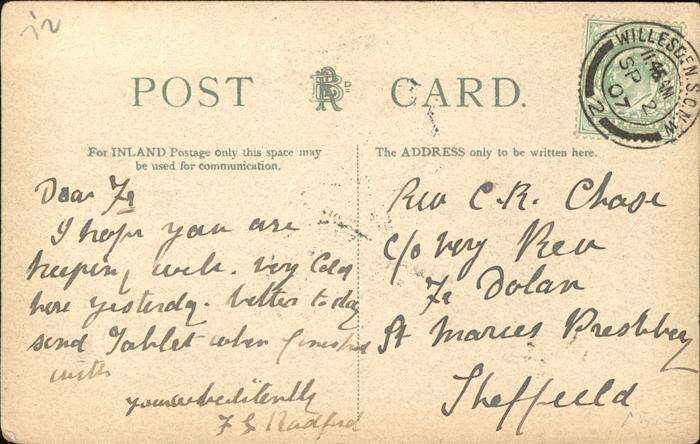 POST CARD.
For INLAND Postage only this space may
be used for communication.
The ADDRESS only to be written here.
WILLESDEN. S.O. N.W
11.45
SP 2
07
2
Dear Fr
I hope you are
keeping well. very Cold
here yesterday. better today
send Tablet when finished
with
yours obediently
F S Radford
Rev C. R. Chase
c/o Very Rev
Fr Dolan
St Maries Presbbery
Sheffield